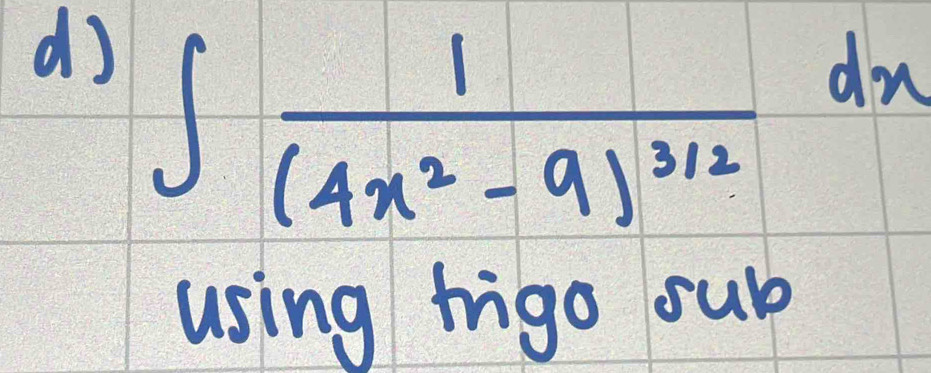 d) ∫ 1 / (4x² - 9)^3/2 dx
using trigo sub